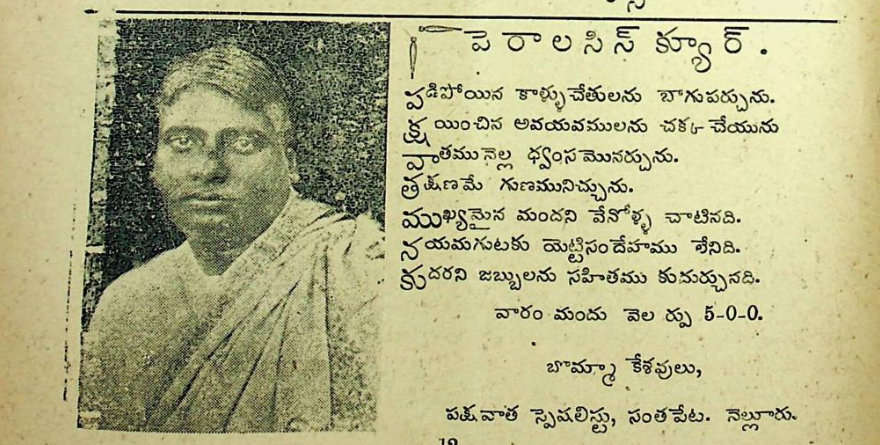 పెరాలసిస్ క్యూర్.
పడిపోయిన కాళ్ళుచేతులను బాగుపర్చును.
క్షయించిన అవయవములను చక్క చేయును
వాతమునెల్ల ధ్వంస మొనర్చును.
త్రక్షణమే గుణమునిచ్చును.
ముఖ్యమైన మందని వేనోళ్ళ చాటినది.
నయమగుటకు యెట్టిసందేహము లేనిది.
కుదరని జబ్బులను సహితము కుదుర్చునది.
వారం మందు వెల ర్పు 5-0-0.
బొమ్మా కేశవులు,
పక్షవాత స్పెషలిస్టు, సంతపేట. నెల్లూరు.